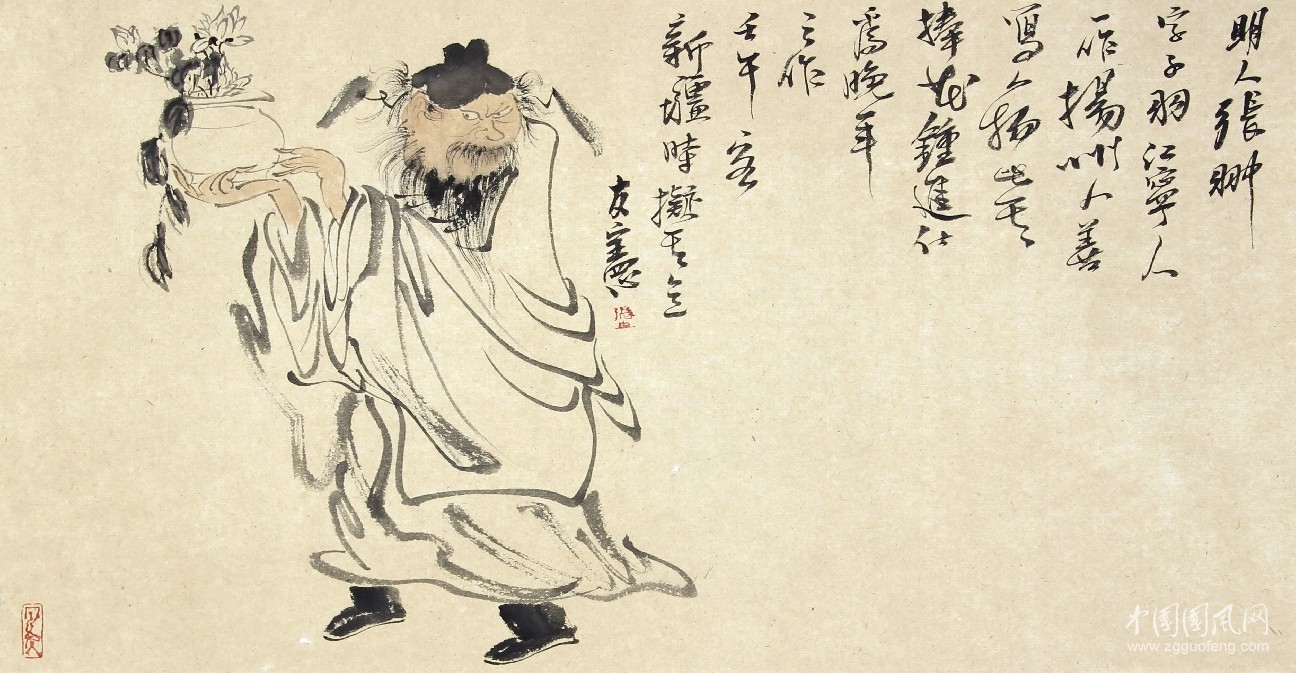 明人張翀
字子羽江寧人
一作揚州人善
寫人物此其
捧花鍾進仕
爲晚年
之作
壬午客
新疆時擬其意
友憲
中国国风网
www.zgguofeng.com